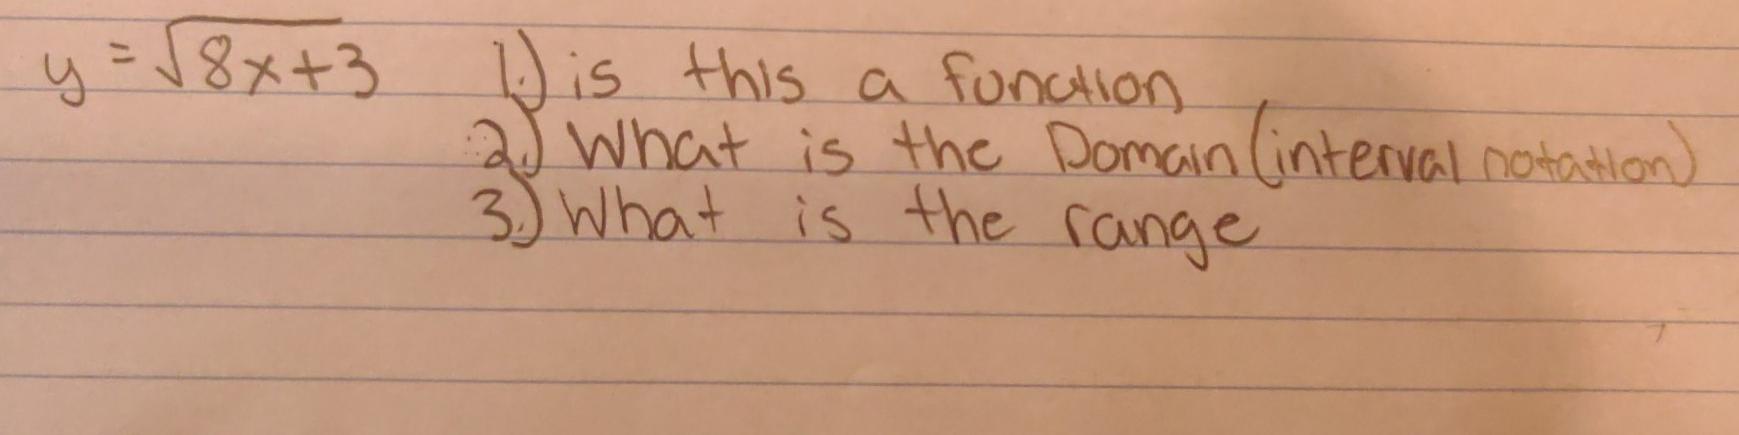 y = √8x+3 1.) is this a function
2.) What is the Domain (interval notation)
3.) What is the range